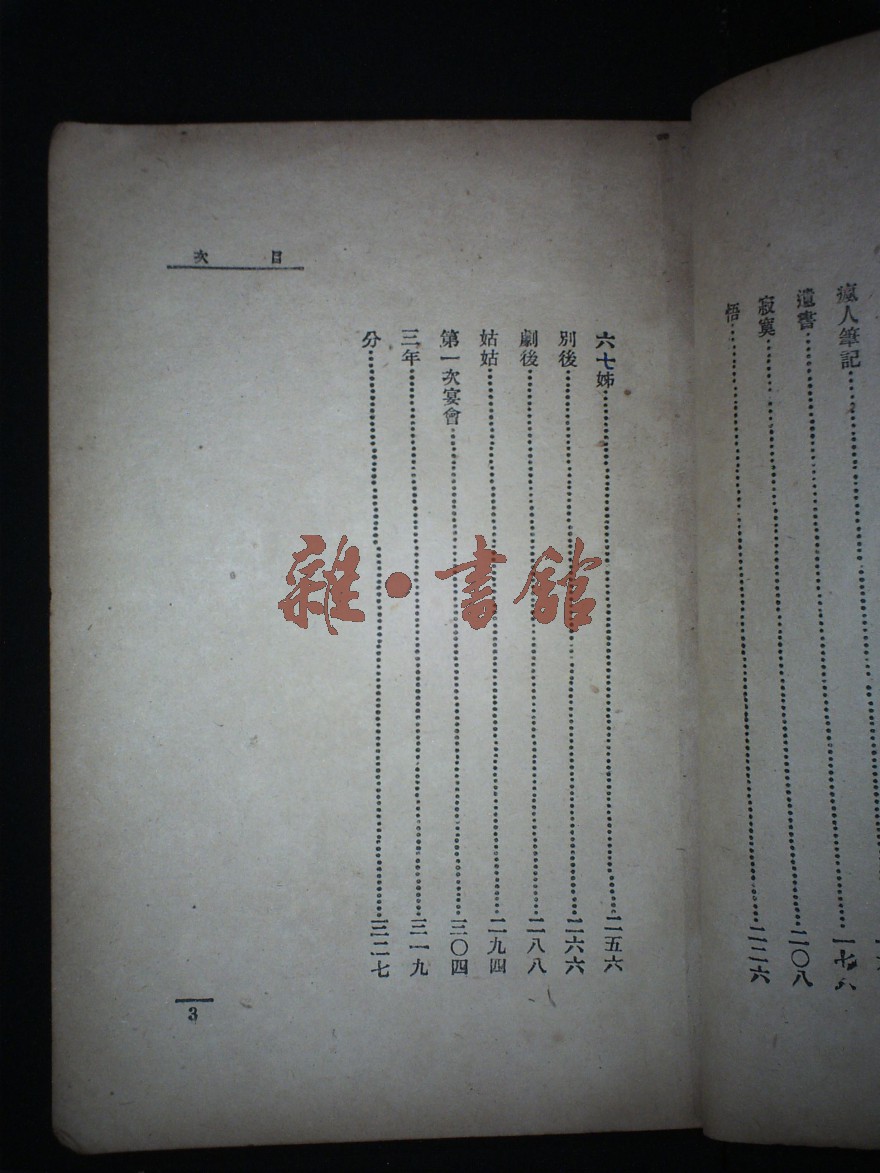 瘋人筆記
遺書 一七六
寂寞 二〇八
悟 二二六
目次
六一七姊 二五六
別後 二六六
劇後 二八八
姑姑 二九四
第一次宴會 三〇四
三年 三一九
分 三二七
3
雜·書館